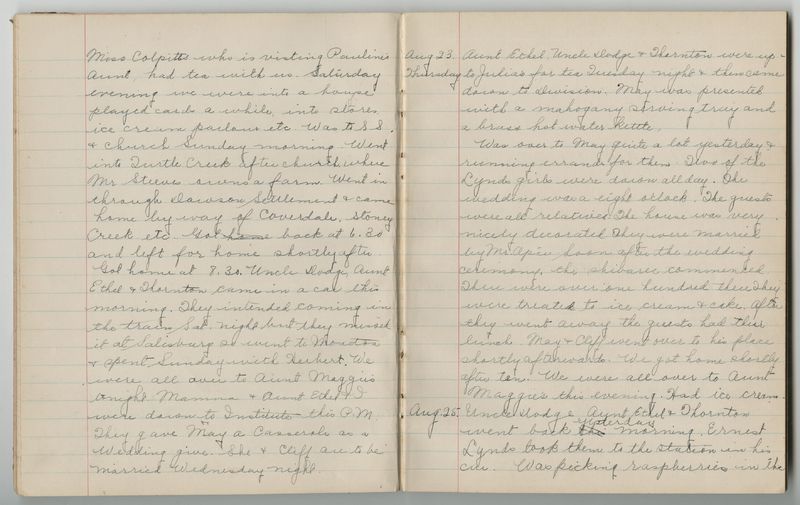 Miss Colpitts who is visiting Pauline's
Aunt, had tea with us. Saturday
evening we were into a house
played cards a while, into stores
ice cream parlour etc. Was to S.S.
& church Sunday morning. Went
into Turtle Creek after church where
Mr Steeves owns a farm. Went in
through Dawson Settlement & came
home by way of Coverdale, Stoney
Creek etc. Got home back at 6.30
and left for home shortly after.
Got home at 8.30. Uncle Dodge, Aunt
Ethel & Thornton came in a car this
morning. They intended coming in
the train Sat. night but they missed
it at Salisbury so went to Moncton
& spent Sunday with Herbert. We
were all over to Aunt Maggie's
tonight. Mamma & Aunt Ethel & I
were down to Institute this P.M.
They gave May a Casserole as a
Wedding give. She & Cliff are to be
married Wednesday night.
Aug 23. Aunt Ethel, Uncle Dodge & Thornton were up
Thursday to Julia's for tea Tuesday night & then came
down to Division. May was presented
with a mahogany serving tray and
a brass hot water kettle.
Was over to May quite a lot yesterday &
running errands for them. Two of the
Lynds girls were down all day. The
wedding was a eight o'clock. The guests
were all relatives. The house was very
nicely decorated. They were married
by Mr. Soon after the wedding
ceremony, the shivaree commenced
There were over one hundred there. They
were treated to ice cream & cake. After
they went away the guests had their
lunch. May & Cliff went over to his place
shortly afterwards. We got home shortly
after ten. We were all over to Aunt
Maggie's this evening. Had ice cream.
Aug. 25. Uncle Dodge, Aunt Ethel & Thornton
went back this yesterday morning. Ernest
Lynds took them to the station in his
car. Was picking raspberries in the